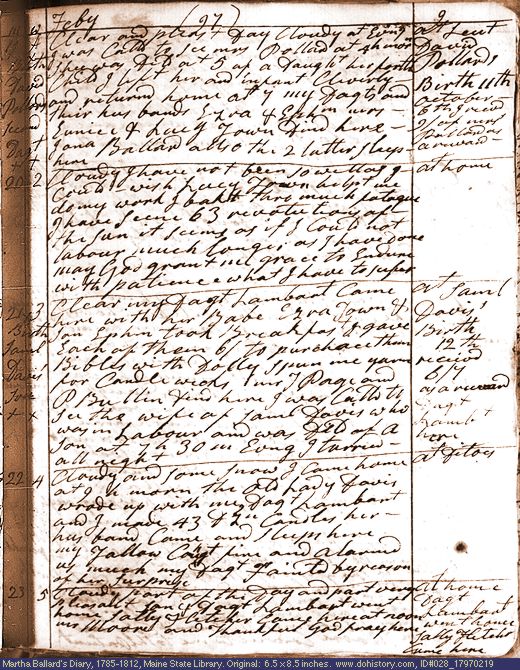 Feby (97) 9
Clear and pleast Day Cloudy at Evng
I was Calld to see mrs Pollard at 4h morn
Shee was DLd at 5 of a Daught her forth
Child I left her and infant Cleverly
and returnd home at 7 my Dagts and
their husbands Ezra & Ephm mrs
Eunice & Lucy Town Dind here
Jona Ballard allso the 2 latter sleeps
here
at Leut
David
Pollards
Birth 11th
october
Pollard as
a reward
20 2 Cloudy I have not been so well as I
Could wish Lucy Town helpt me
do my work I bakt thro much fatague
I have Seene 63 revolutions of
the Sun it seems as if I Could not
labour much longer as I have done
may God grant me grace to Endure
with patience what I have to suffer
at home
21 3 Clear my Dagt Lambart Came
here with her Babe Ezra Town &
Son John took Breakfast I gave
Each of them 6/ to purchace them
Bibles with Dolly Spun me yarn
for Candle weeks mrs Page and
P Bullin Dind here I was Calld to
See the wife of Saml Davis who
was in Labour and was DLd of a
Son at 7h 30m Evng I tarred
all night
Birth
Saml
Davis
x x
at Saml
Davis,
Birth
12th
receivd
6/ as a reward
Dagt
Lambt
here
22 4 Cloudy and some snow I Came home
at 9 h morn the old Lady Davis
wrode up with my Dagt Lambart
and I made 43 Candles her
husband Came and sleeps here
my Tallow Cagt fire and alarmd
us much my Dagt fainted by reason
of her Surprise
at ditoes
23 5 Cloudy part of the Day and part very
pleasant Son & Dagt Lambart went
home Sally Fletcher Came here at noon
mrs Moore and
at home
Dagt
Lambart
went home
Sally Fletcher
Came here
Martha Ballard's Diary, 1785-1812, Maine State Library. Original: 6.5 x 8.5 inches. www.dohistory.com, ID#0028_17970219